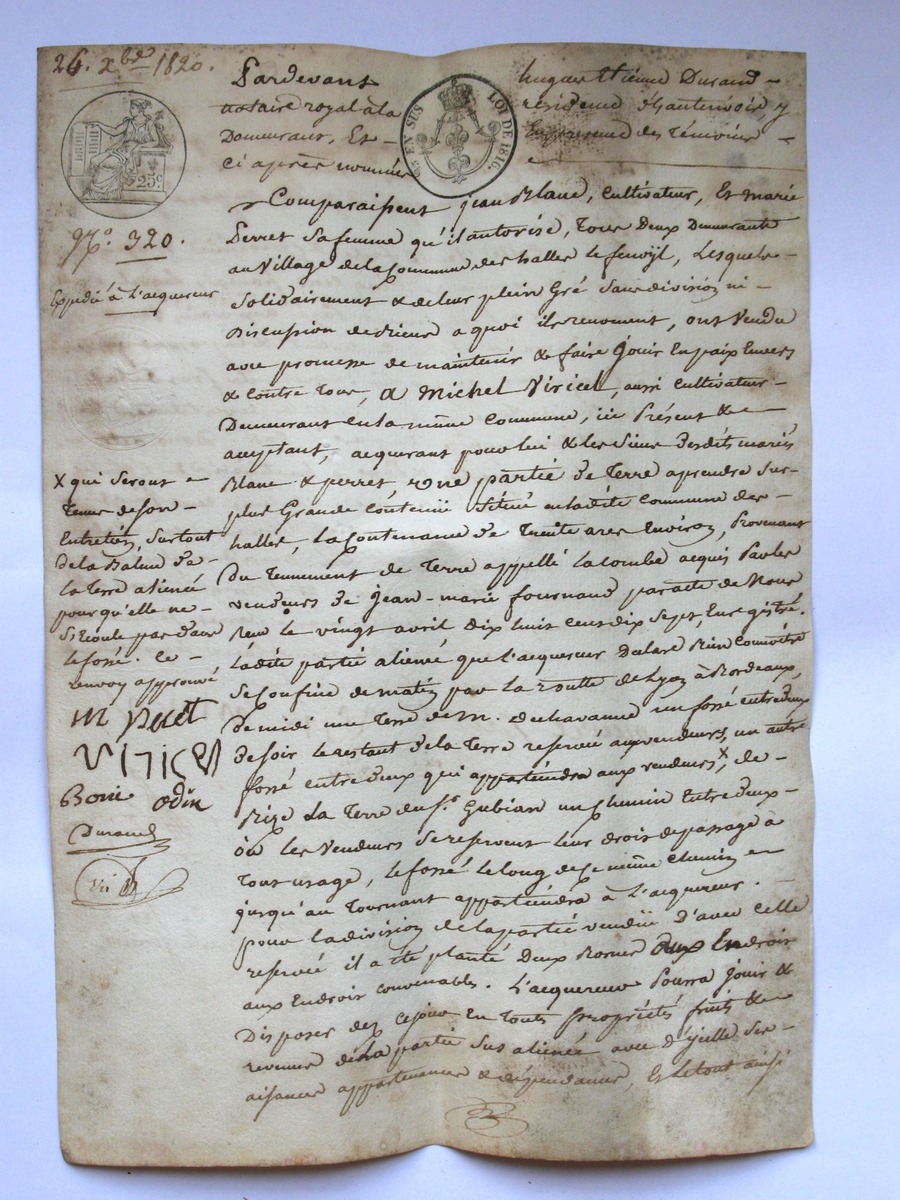 26. Xbre 1820.
Pardevant hugues Etienne Durand
notaire royal à la résidence d'hauterivoir, y
Demeurant, Et En présence des Témoins
ci après nommés
EN SUS LOI DE 1816.
25c
No. 320.
Expédié à l'acquereur
Comparaissent jean Blanc, Cultivateur, Et marie
Perret Sa femme qu'il autorise, Tous Deux Demeurants
au Village de la Commune des halles le fenoÿl, Lesquels
Solidairement & de leur plein Gré Sans division ni
Discussion de biens a quoi ils renoncent, ont Vendu
avec promesse de maintenir & faire Jouir En paix Envers
& Contre Tous, A Michel Viricel, aussi Cultivateur
Demeurant en la même Commune, ici Présent &
acceptant, acquerant pour lui & les Siens desdits mariés
Blanc & perret, une partie de Terre a prendre Sur
plus Grande Contenue Située en ladite Commune des
halles, la Contenance de Trente ares Environ, Provenant
Du Tennement de Terre appellé la combe acquis Par les
vendeurs de Jean-marie fournand par acte de Nous
Reçu le vingt avril Dix huit Cent dix Sept, Enregistré.
Ladite partie alienée que l'acquereur Déclare Bien Connoitre
Se Confine de matin par la routte de Lyon à Bordeaux,
De midi une Terre de M. de chavanne un fossé entredeux
de soir le restant de la Terre reservée aux vendeurs, un autre
fossé entre deux qui appartiendra aux vendeurs X, de
Bize La Terre du Sr. Gubian un Chemin Entredeux
où les Vendeurs Se reservent leur droit de passage à
Tous usage, le fossé le long de ce même Chemin
jusqu'au Tournant appartiendra à L'acquereur.
pour la division de la partie vendüe D'avec Celle
reservée il a été planté Deux Bornes aux Endroits
aux Endroits convenables. L'acquereur Pourra Jouir &
Disposer dez ce jour En Toute Propriétés fruits &
revenus de la partie Sus alienée avec d'ycelle Ses
aisances appartenances & dépendances, Et le tout ainsi
X qui Seront
Tenus de son
Entretien, Surtout
de la Balme de
la Terre alienée
pour qu'elle ne
S'Ecoule pas dans
le fossé. Ce
renvoy approuvé
M Peret
Viricel
Bonie odin
Durand